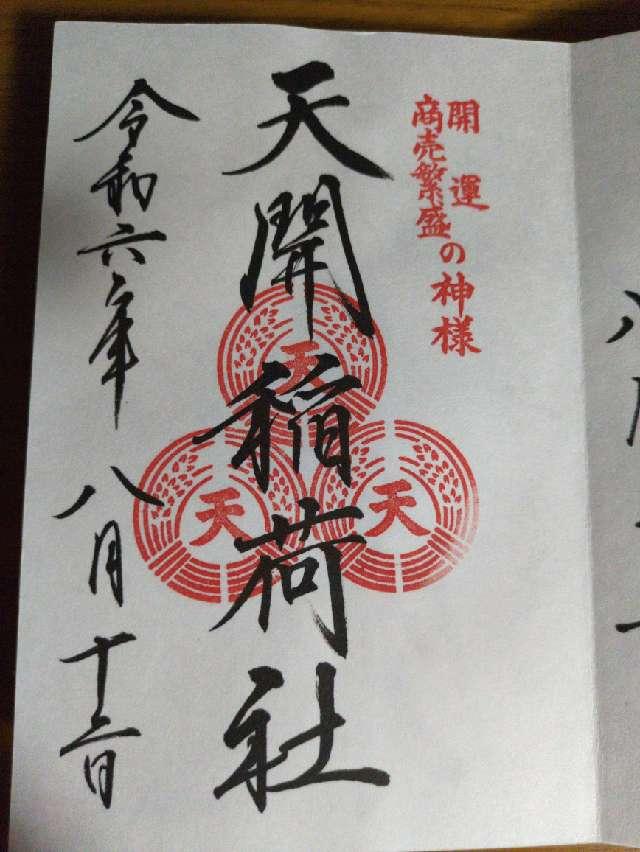 開運
商売繁盛の神様
天開稲荷社
天
天
天
令和六年 八月十二日